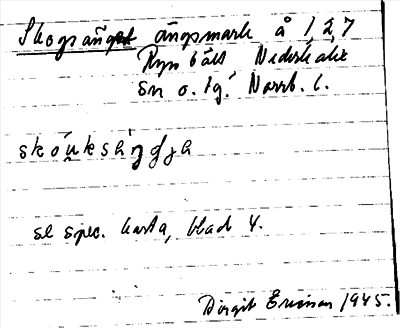 Skogsänget ängsmark å 1,2,7
Ryss bält Nederkalix
sn o. tg. Norrb. l.
skóu̯ksàŋgja
se spec. karta, blad 4.
Birgit Ericson 1945.